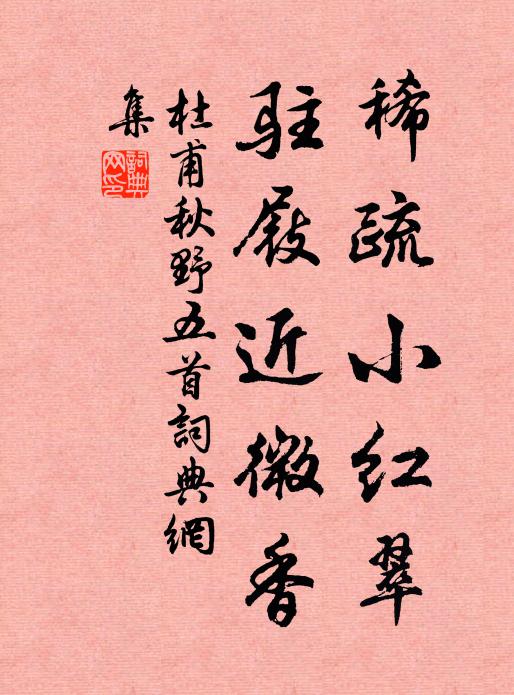 稀疏小红翠
驻屐近微香
杜甫秋野五首詞典網
集
詞典网印